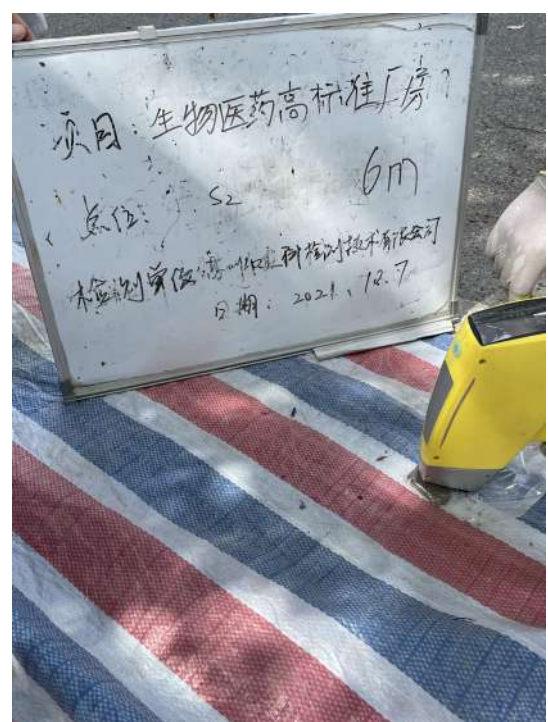 项目：生物医药高标准厂房
点位：S2 6m
检测单位：检测技术有限公司
日期：2021.12.7